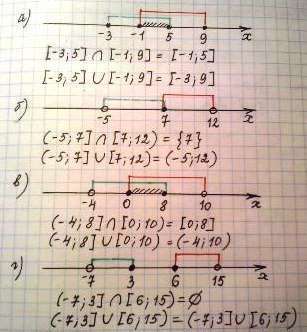 а)
-3 -1 5 9 x
[-3;5] ∩ [-1;9] = [-1;5]
[-3;5] ∪ [-1;9] = [-3;9]
б)
-5 7 12 x
(-5;7] ∩ [7;12) = {7}
(-5;7] ∪ [7;12) = (-5;12)
в)
-4 0 8 10 x
(-4;8] ∩ [0;10) = [0;8]
(-4;8] ∪ [0;10) = (-4;10)
г)
-7 3 6 15 x
(-7;3] ∩ [6;15) = ∅
(-7;3] ∪ [6;15) = (-7;3] ∪ [6;15)